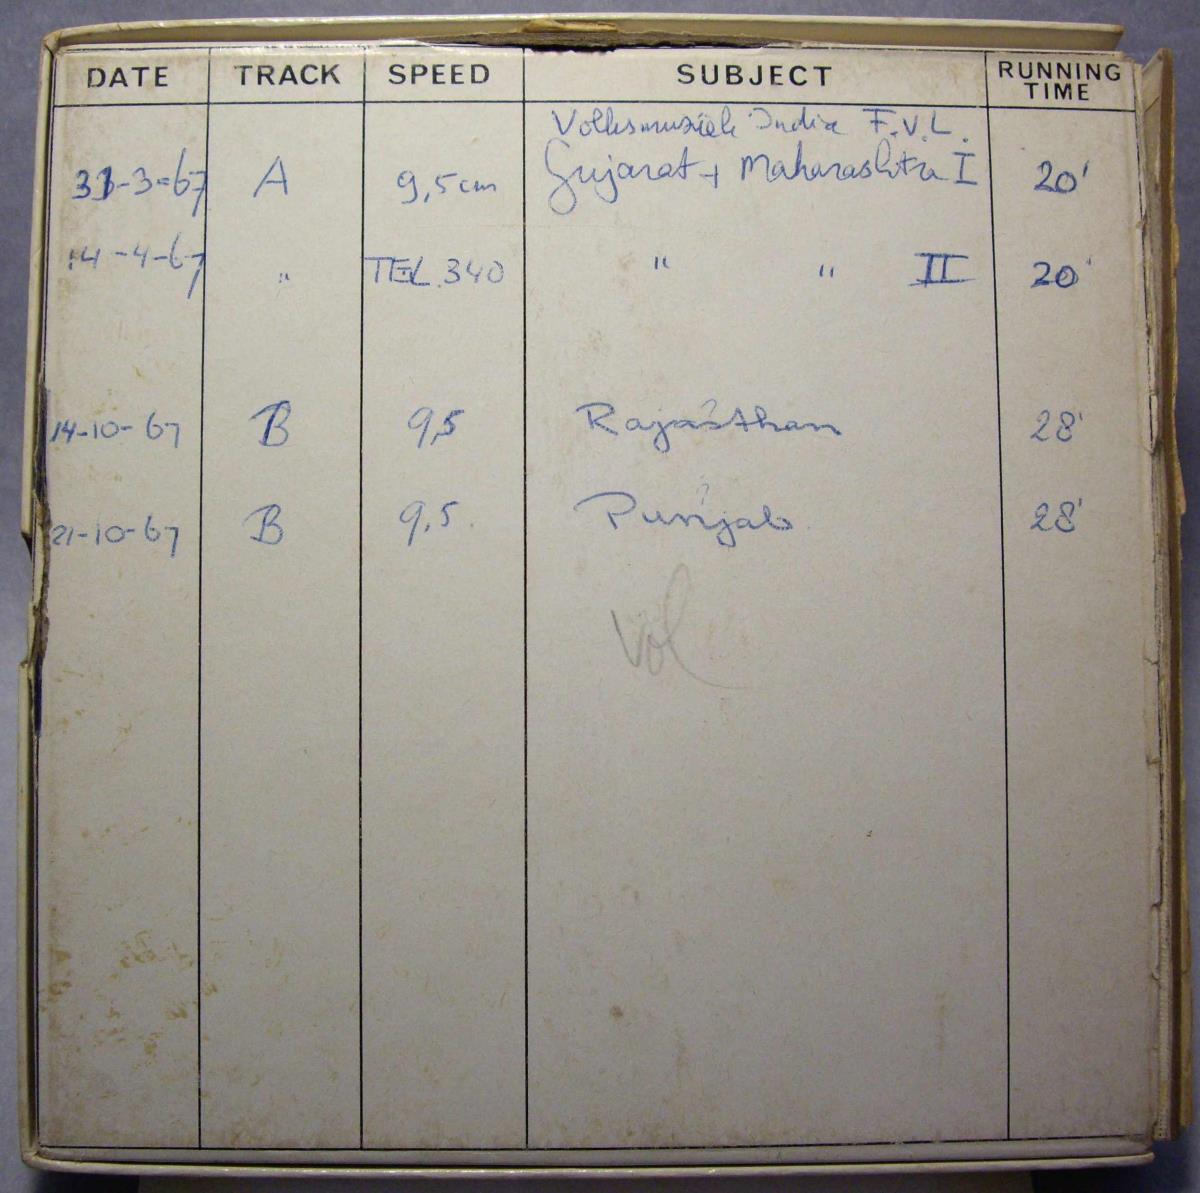 DATE TRACK SPEED SUBJECT RUNNING TIME
Volksmuziek India F.V.L.
31-3-67 A 9,5 cm Gujarat + Maharashtra I 20'
14-4-67 " TEL. 340 " " II 20'
14-10-67 B 9,5 Rajasthan 28'
21-10-67 B 9,5. Punjab 28'
Vol